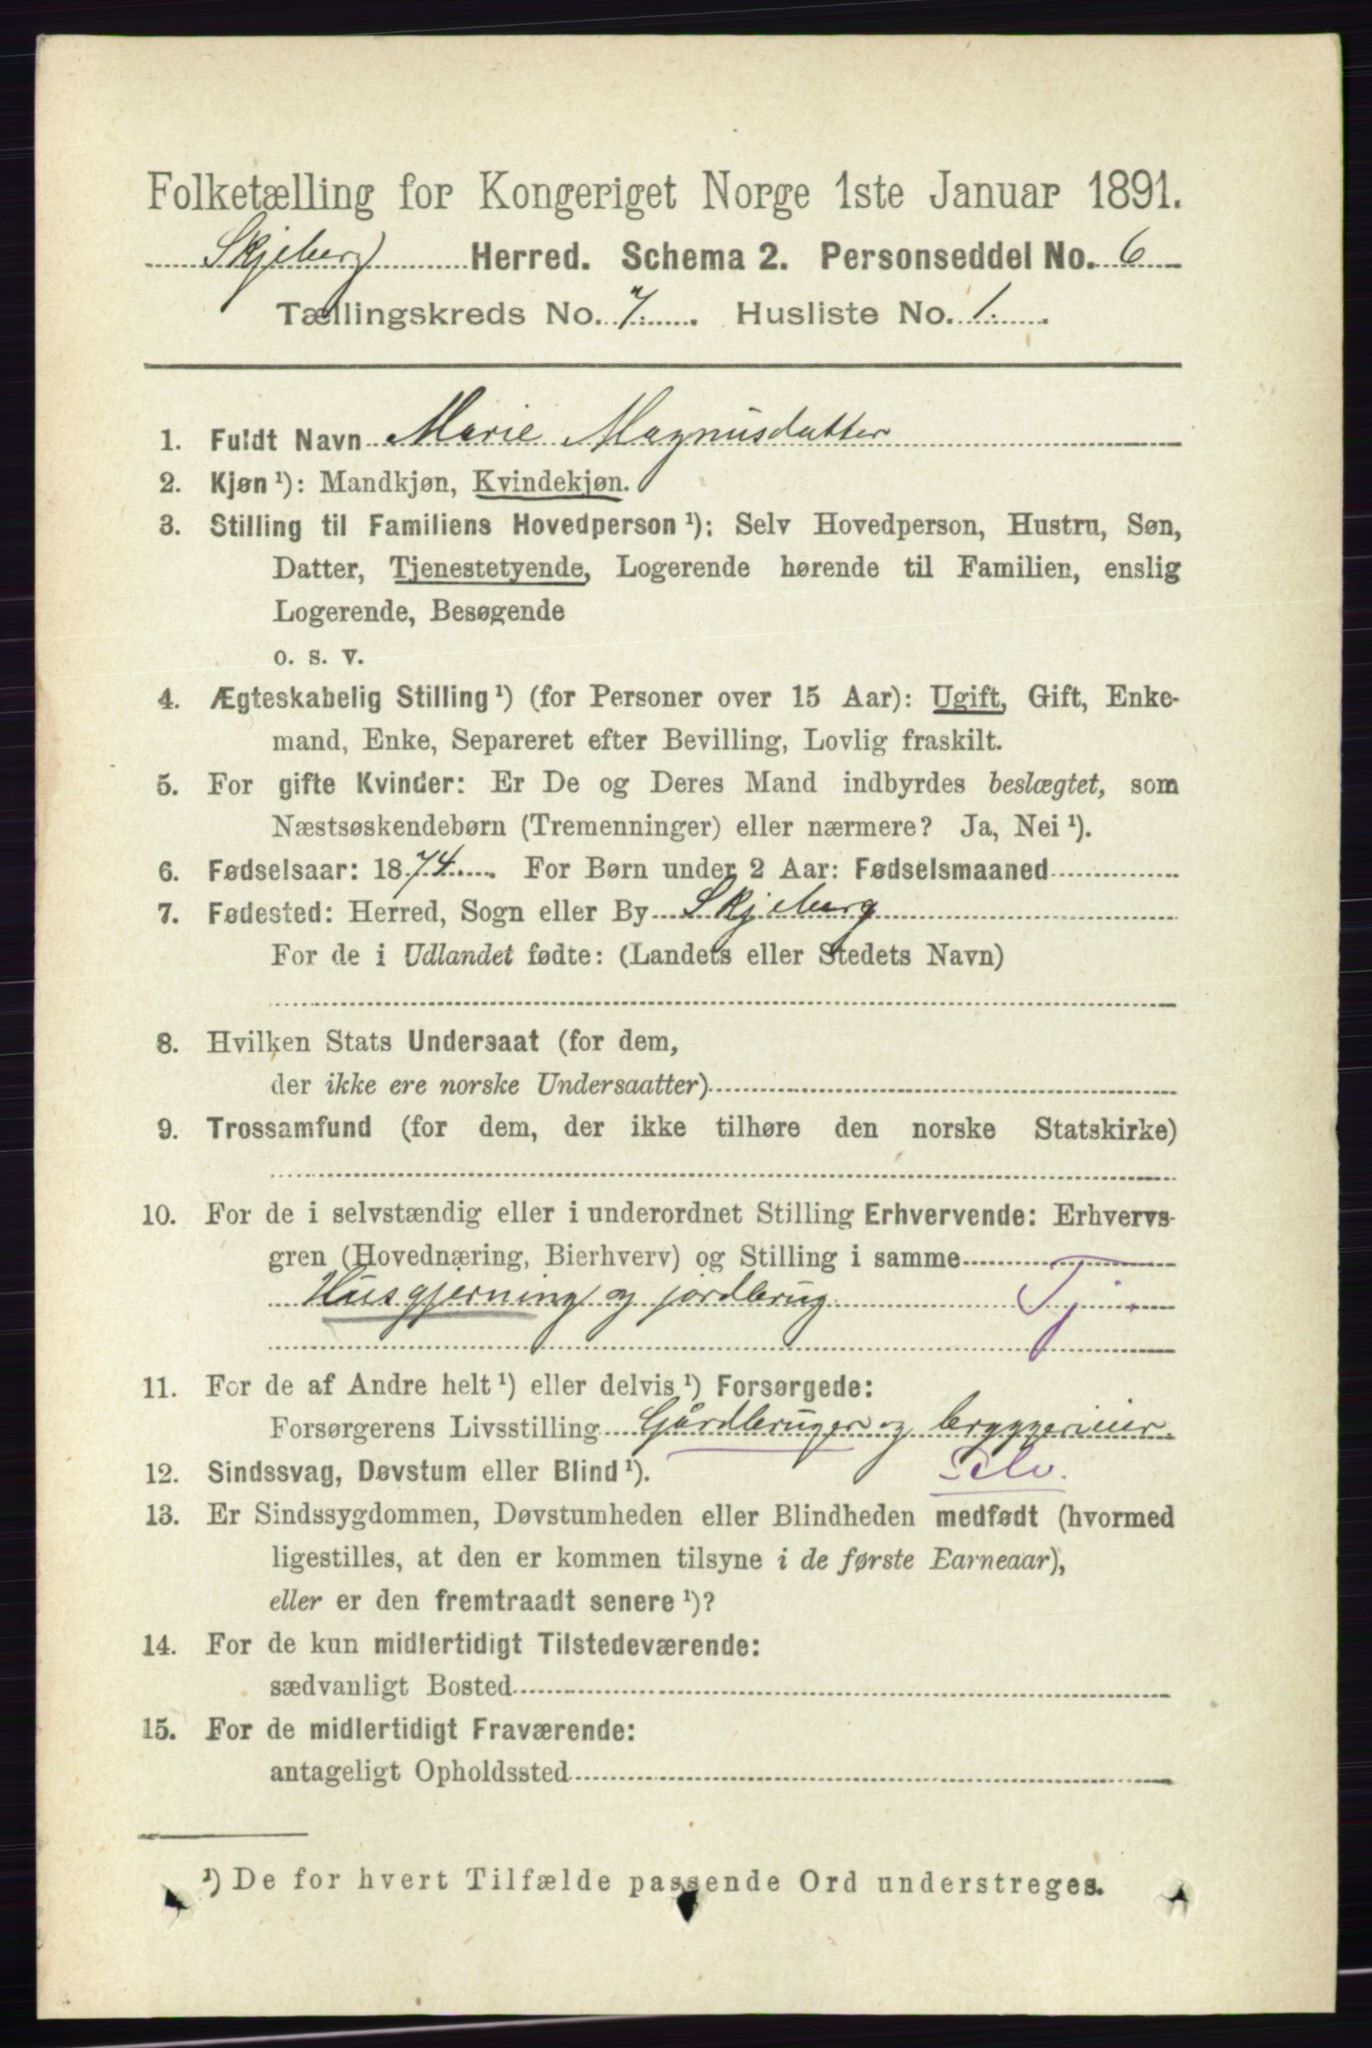 Folketælling for Kongeriget Norge 1ste Januar 1891.
Skjeberg Herred. Schema 2. Personseddel No. 6
Tællingskreds No. 7. Husliste No. 1.
1. Fuldt Navn Marie Magnusdatter
2. Kjøn ¹): Mandkjøn, Kvindekjøn.
3. Stilling til Familiens Hovedperson ¹): Selv Hovedperson, Hustru, Søn,
Datter, Tjenestetyende, Logerende hørende til Familien, enslig
Logerende, Besøgende
o. s. v.
4. Ægteskabelig Stilling ¹) (for Personer over 15 Aar): Ugift, Gift, Enke-
mand, Enke, Separeret efter Bevilling, Lovlig fraskilt.
5. For gifte Kvinder: Er De og Deres Mand indbyrdes beslægtet, som
Næstsøskendebørn (Tremenninger) eller nærmere? Ja, Nei ¹).
6. Fødselsaar: 1874. For Børn under 2 Aar: Fødselsmaaned
7. Fødested: Herred, Sogn eller By Skjeberg
For de i Udlandet fødte: (Landets eller Stedets Navn)
8. Hvilken Stats Undersaat (for dem,
der ikke ere norske Undersaatter)
9. Trossamfund (for dem, der ikke tilhøre den norske Statskirke)
10. For de i selvstændig eller i underordnet Stilling Erhvervende: Erhvervs-
gren (Hovednæring, Bierhverv) og Stilling i samme
Husgjerning og jordbrug Tj.
11. For de af Andre helt ¹) eller delvis ¹) Forsørgede:
Forsørgerens Livsstilling Gårdbruger og bryggerieier.
12. Sindssvag, Døvstum eller Blind ¹). Selv.
13. Er Sindssygdommen, Døvstumheden eller Blindheden medfødt (hvormed
ligestilles, at den er kommen tilsyne i de første Barneaar),
eller er den fremtraadt senere ¹)?
14. For de kun midlertidigt Tilstedeværende:
sædvanligt Bosted
15. For de midlertidigt Fraværende:
antageligt Opholdssted
¹) De for hvert Tilfælde passende Ord understreges.